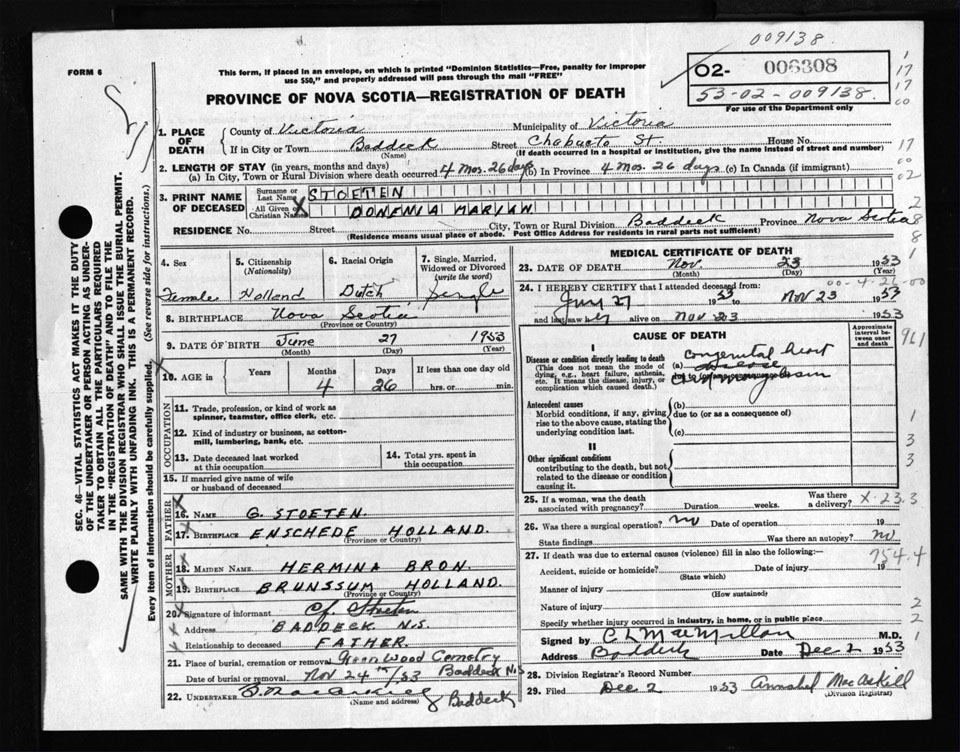 009138
FORM 6
This form, if placed in an envelope, on which is printed "Dominion Statistics—Free, penalty for improper
use $50," and properly addressed will pass through the mail "FREE"
02- 006308
53-02-009138.
For use of the Department only
PROVINCE OF NOVA SCOTIA—REGISTRATION OF DEATH
1. PLACE OF DEATH
County of Victoria Municipality of Victoria
If in City or Town Baddeck Street Chabucto St. House No.
(Name) (If death occurred in a hospital or institution, give the name instead of street and number)
2. LENGTH OF STAY (in years, months and days)
(a) In City, Town or Rural Division where death occurred 4 Mos. 26 days (b) In Province 4 Mos. 26 days (c) In Canada (if immigrant)
3. PRINT NAME OF DECEASED
Surname or Last Name STOETEN
All Given or Christian Names DONEMIA MARIAN
RESIDENCE No. Street City, Town or Rural Division Baddeck Province Nova Scotia
(Residence means usual place of abode. Post Office Address for residents in rural parts not sufficient)
4. Sex
Female
5. Citizenship
(Nationality)
Holland
6. Racial Origin
Dutch
7. Single, Married,
Widowed or Divorced
(write the word)
Single
8. BIRTHPLACE Nova Scotia
(Province or Country)
9. DATE OF BIRTH June 27 1953
(Month) (Day) (Year)
10. AGE in Years Months Days If less than one day
4 26 hrs. or min.
OCCUPATION
11. Trade, profession, or kind of work as
spinner, teamster, office clerk, etc.
12. Kind of industry or business, as cotton-
mill, lumbering, bank, etc.
13. Date deceased last worked
at this occupation
14. Total yrs. spent in
this occupation
15. If married give name of wife
or husband of deceased
FATHER
16. NAME G. STOETEN.
17. BIRTHPLACE ENSCHEDE HOLLAND.
(Province or Country)
MOTHER
18. MAIDEN NAME HERMINA BRON.
19. BIRTHPLACE BRUNSSUM HOLLAND.
(Province or Country)
20. Signature of informant G. Stoeten
Address BADDECK N.S
Relationship to deceased FATHER.
21. Place of burial, cremation or removal Green Wood Cemetry
Baddeck N.S
Date of burial or removal Nov 24th /53
22. UNDERTAKER MacAskill Baddeck
(Name and address)
MEDICAL CERTIFICATE OF DEATH
23. DATE OF DEATH Nov. 23 1953
(Month) (Day) (Year)
00-4-26-00
24. I HEREBY CERTIFY that I attended deceased from
June 27 1953 to Nov 23 1953
and last saw her alive on Nov 23 1953
CAUSE OF DEATH
Approximate
interval
between onset
and death
I
Disease or condition directly leading to death
(This does not mean the mode of
dying, e.g., heart failure, asthenia,
etc. It means the disease, injury, or
complication which caused death.)
(a) Congenital heart
disease
Antecedent causes
Morbid conditions, if any, giving
rise to the above cause, stating the
underlying condition last.
(b)
due to (or as a consequence of)
(c)
II
Other significant conditions
contributing to the death, but not
related to the disease or condition
causing it.
25. If a woman, was the death
associated with pregnancy? Duration weeks. Was there
a delivery? X-23.3
26. Was there a surgical operation? no Date of operation 19
State findings Was there an autopsy? no
27. If death was due to external causes (violence) fill in also the following:—
754.4
Accident, suicide or homicide? Date of injury 19
(State which)
Manner of injury
(How sustained)
Nature of injury
Specify whether injury occurred in industry, in home, or in public place
Signed by C L MacMillan M.D.
Address Baddeck Date Dec 2 1953
28. Division Registrar's Record Number
29. Filed Dec 2 1953 Annabel MacAskill
(Division Registrar)
SEC. 46—VITAL STATISTICS ACT MAKES IT THE DUTY
OF THE UNDERTAKER OR PERSON ACTING AS UNDER-
TAKER TO OBTAIN ALL THE PARTICULARS REQUIRED
IN THE "REGISTRATION OF DEATH" AND TO FILE THE
SAME WITH THE DIVISION REGISTRAR WHO SHALL ISSUE THE BURIAL PERMIT.
WRITE PLAINLY WITH UNFADING INK. THIS IS A PERMANENT RECORD.
Every item of information should be carefully supplied. (See reverse side for instructions.)
1
17
17
00
17
00
02
2
8
8
961
1
3
3
2
2
1